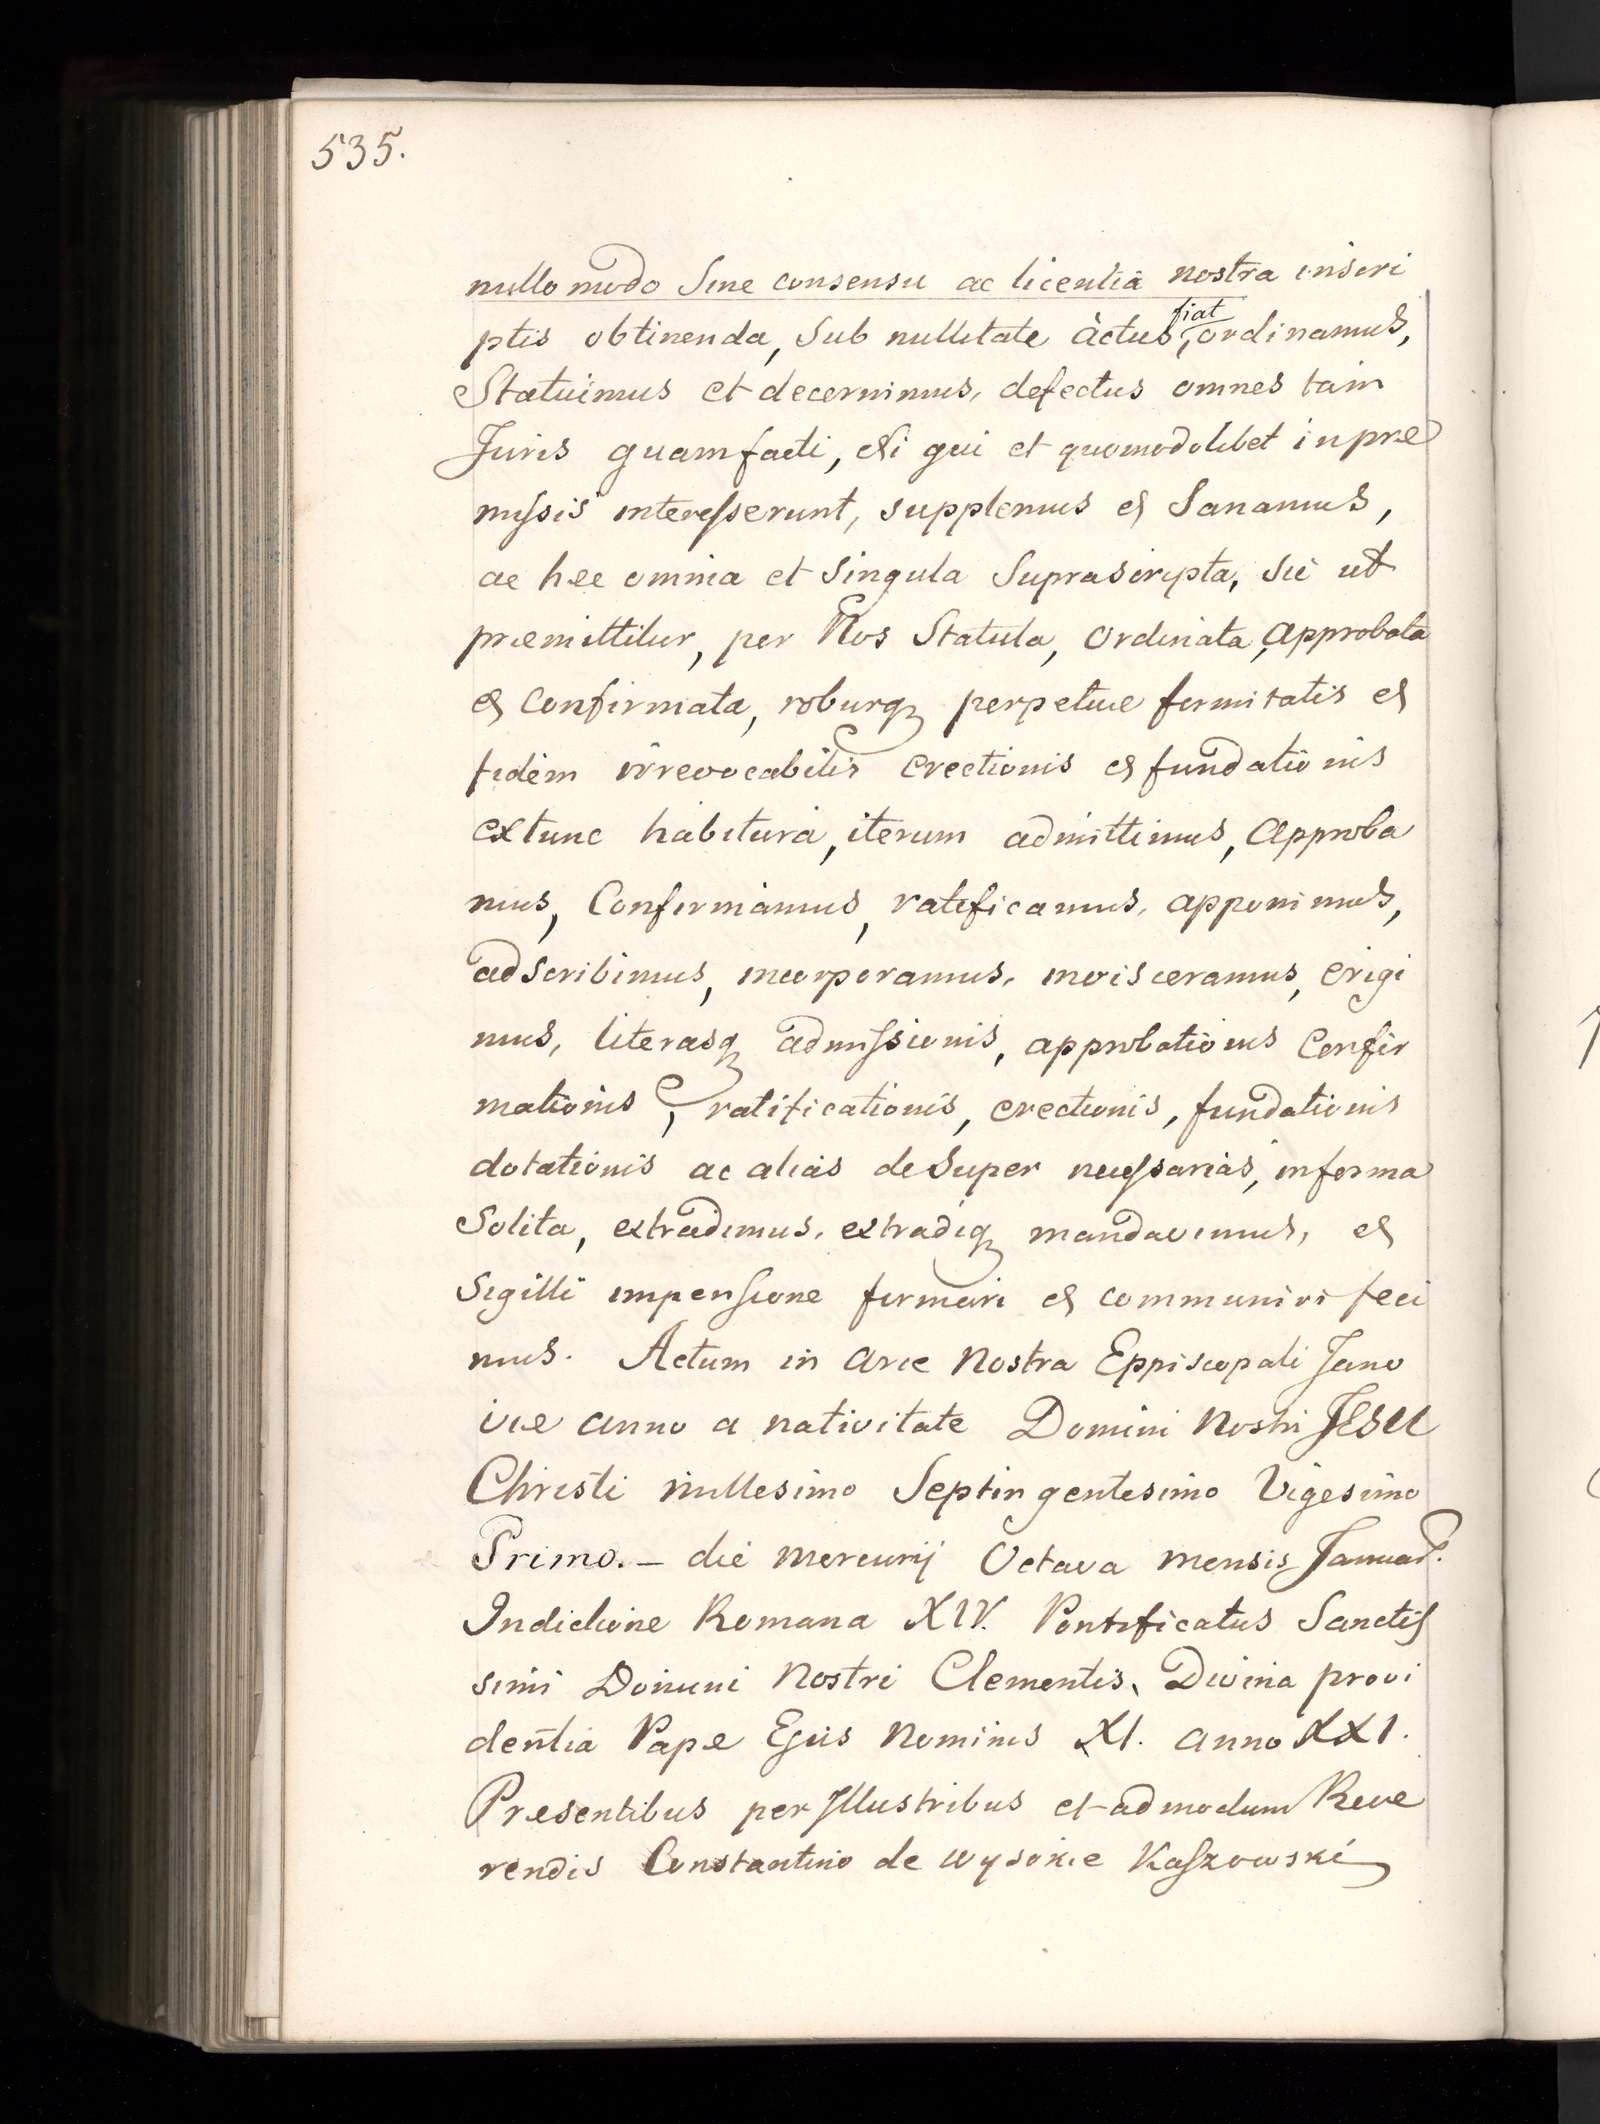 535.
nullo modo Sine consensu ac licentia nostra inscri
fiat
ptis obtinenda, Sub nullitate actus, ordinamus,
Statuimus et decernimus, defectus omnes tam
Juris quam facti, Si qui et quomodolibet in præ
missis interesserunt, supplemus et Sanamus,
ac hæc omnia et Singula Suprascripta, Sic ut
præmittitur, per Nos Statuta, Ordinata, Approbata
et Confirmata, roburq perpetuæ firmitatis et
fidem irrevocabilis Erectionis et fundationis
extunc habitura, iterum admittimus, Approba
mus, Confirmamus, ratificamus, apponimus,
adscribimus, incorporamus, invisceramus, erigi
mus, literasq admissionis, approbationis Confir
mationis, ratificationis, erectionis, fundationis
dotationis ac alias deSuper necessarias, in forma
Solita, extradimus, extradiq mandavimus, et
Sigilli impensione firmari et communiri feci
mus. Actum in Arce Nostra Eppiscopali Jano
viæ anno a nativitate Domini Nostri JESU
Christi millesimo Septingentesimo Vigesimo
Primo. – die Mercurij Octava mensis Januar.
Indictione Romana XIV. Pontificatus Sanctis
simi Domini Nostri Clementis, Divina provi
dentia Papæ Ejus Nominis XI. anno XXI.
Præsentibus per Illustribus et admodum Reve
rendis Constantino de Wysokie Kaszowski